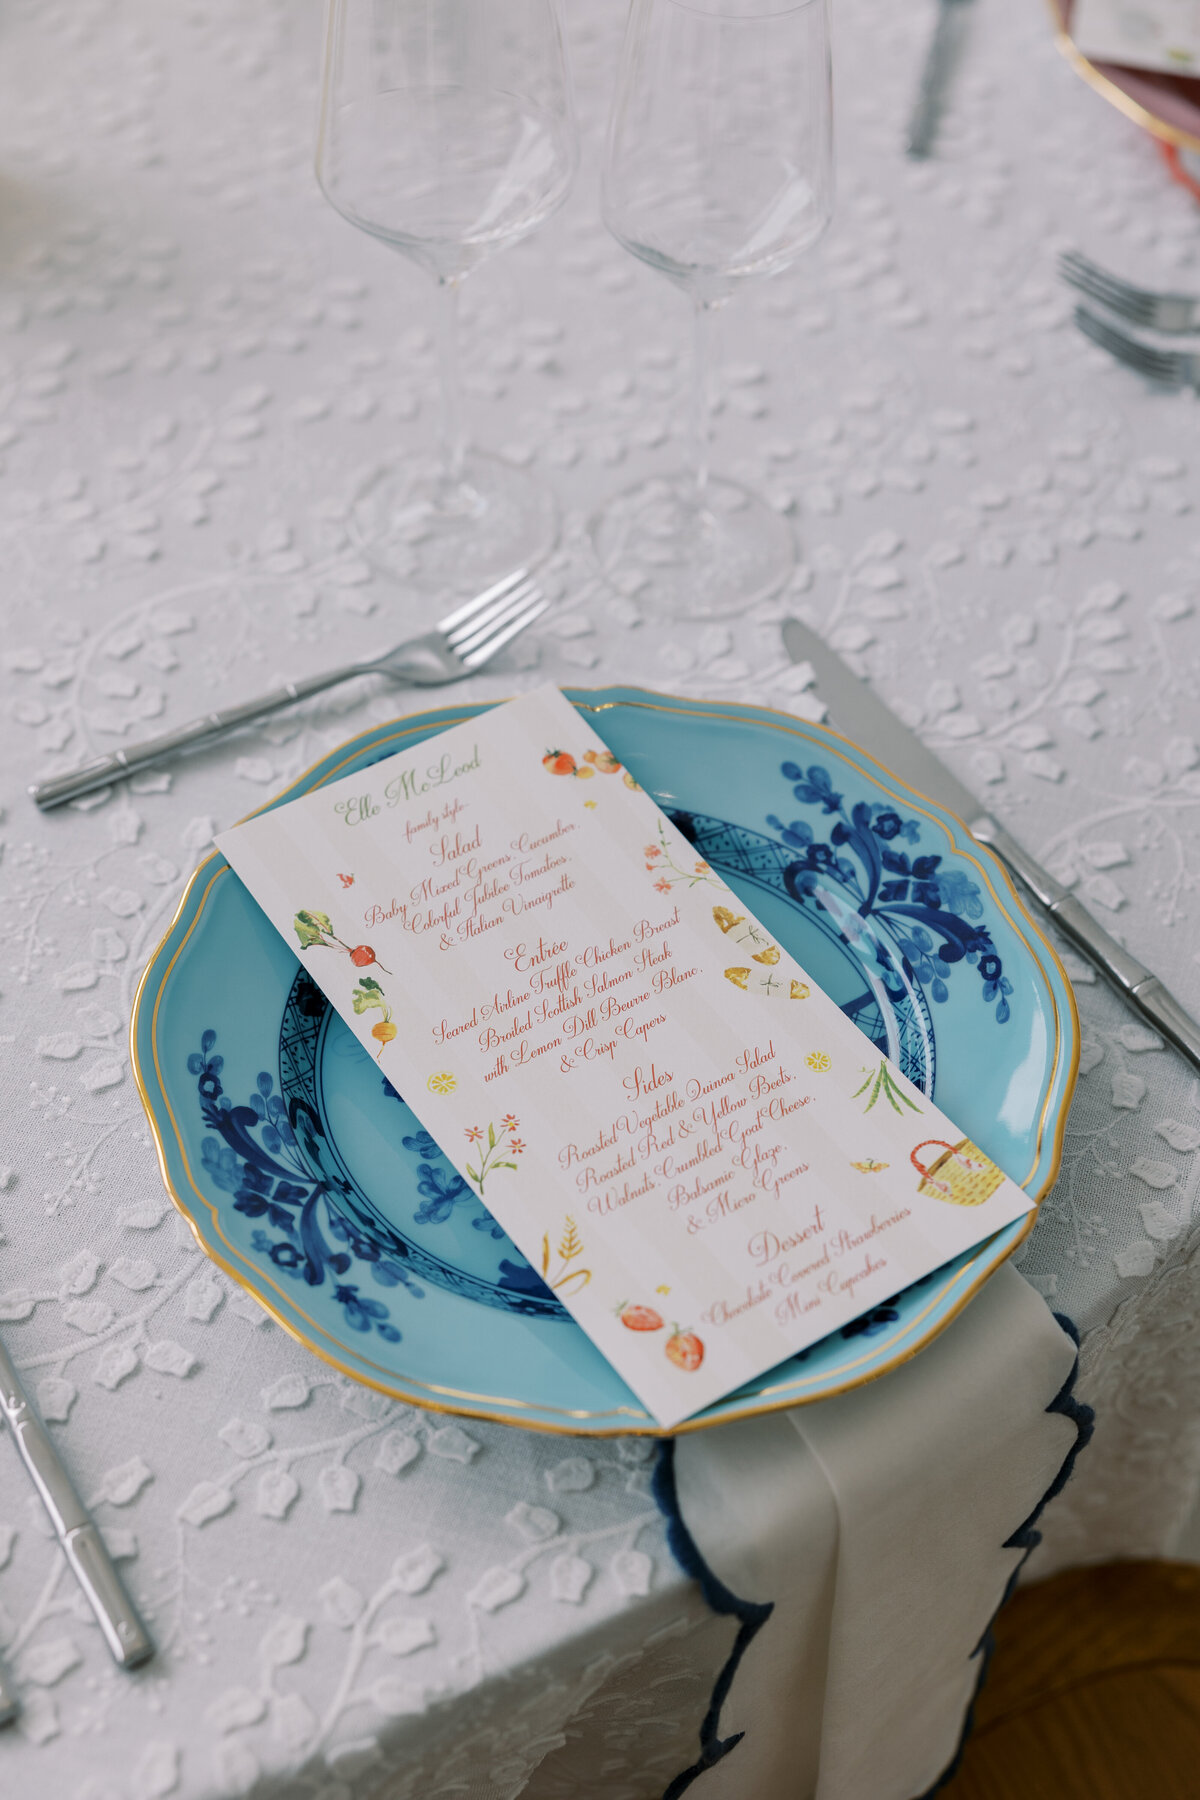 Elle McLeod
family style-
Salad
Baby Mixed Greens, Cucumber,
Colorful Jubilee Tomatoes,
& Italian Vinaigrette
Entrée
Seared Airline Truffle Chicken Breast
Broiled Scottish Salmon Steak
with Lemon Dill Beurre Blanc,
& Crisp Capers
Sides
Roasted Vegetable Quinoa Salad
Roasted Red & Yellow Beets,
Walnuts, Crumbled Goat Cheese,
Balsamic Glaze,
& Micro Greens
Dessert
Chocolate Covered Strawberries
Mini Cupcakes